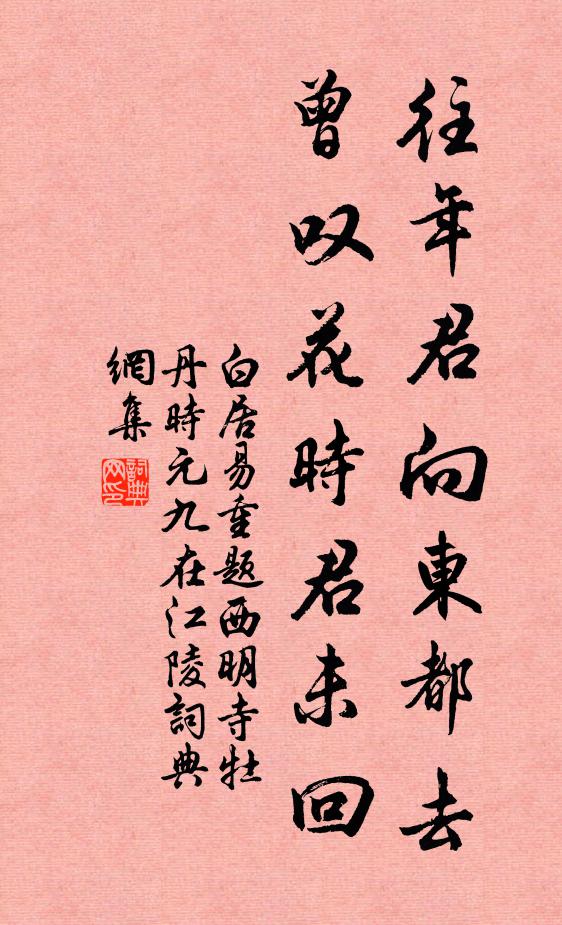 往年君向東都去
曾叹花時君未回
白居易重题西明寺牡
丹時元九在江陵詞典
網集
詞典
网印